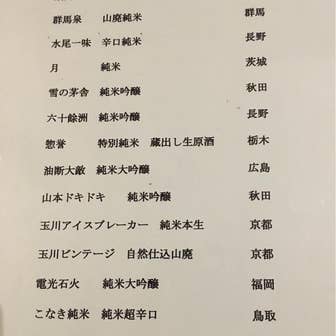 群馬泉　山廃純米　群馬
水尾一味　辛口純米　長野
月　純米　茨城
雪の茅舎　純米吟醸　秋田
六十餘洲　純米吟醸　長野
惣誉　特別純米　蔵出し生原酒　栃木
油断大敵　純米大吟醸　広島
山本ドキドキ　純米吟醸　秋田
玉川アイスブレーカー　純米本生　京都
玉川ビンテージ　自然仕込山廃　京都
電光石火　純米大吟醸　福岡
こなき純米　純米超辛口　鳥取